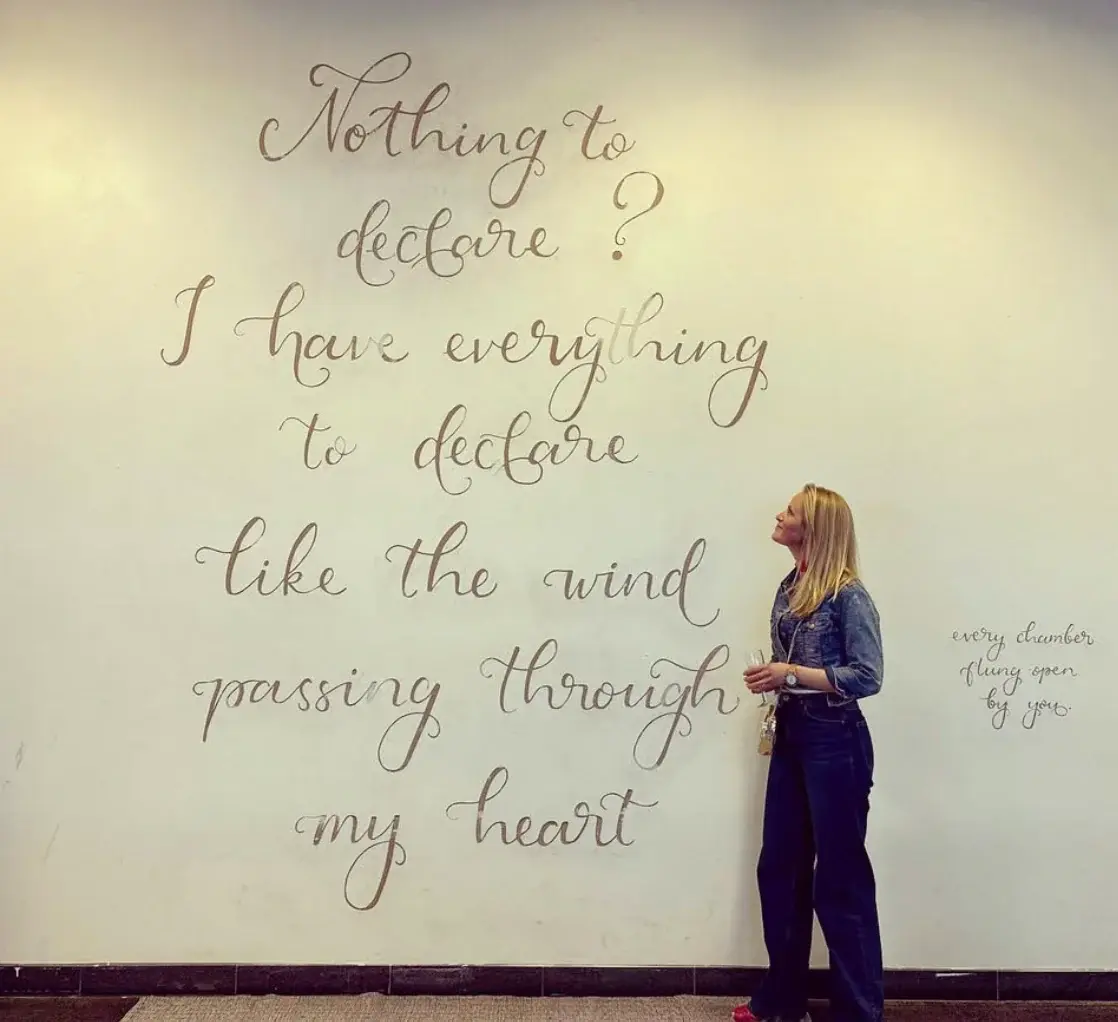 Nothing to
declare ?
I have everything
to declare
like the wind
passing through
my heart
every chamber
flung open
by you.